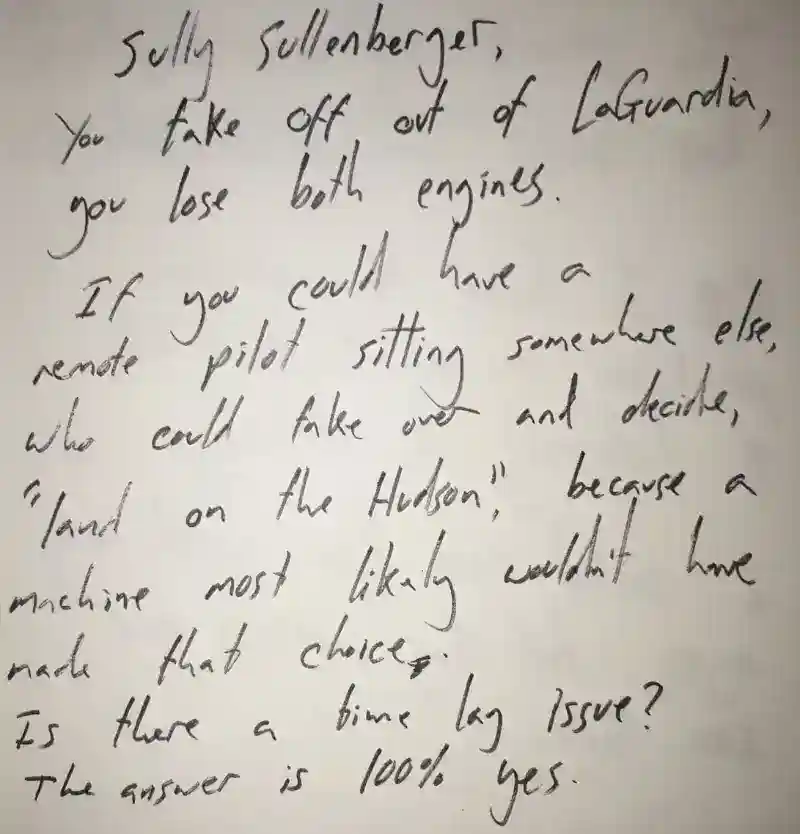 Sully Sullenberger,
You take off out of LaGuardia,
you lose both engines.
If you could have a
remote pilot sitting somewhere else,
who could take over and decide,
"land on the Hudson", because a
machine most likely wouldn't have
made that choice.
Is there a time lag issue?
The answer is 100% yes.